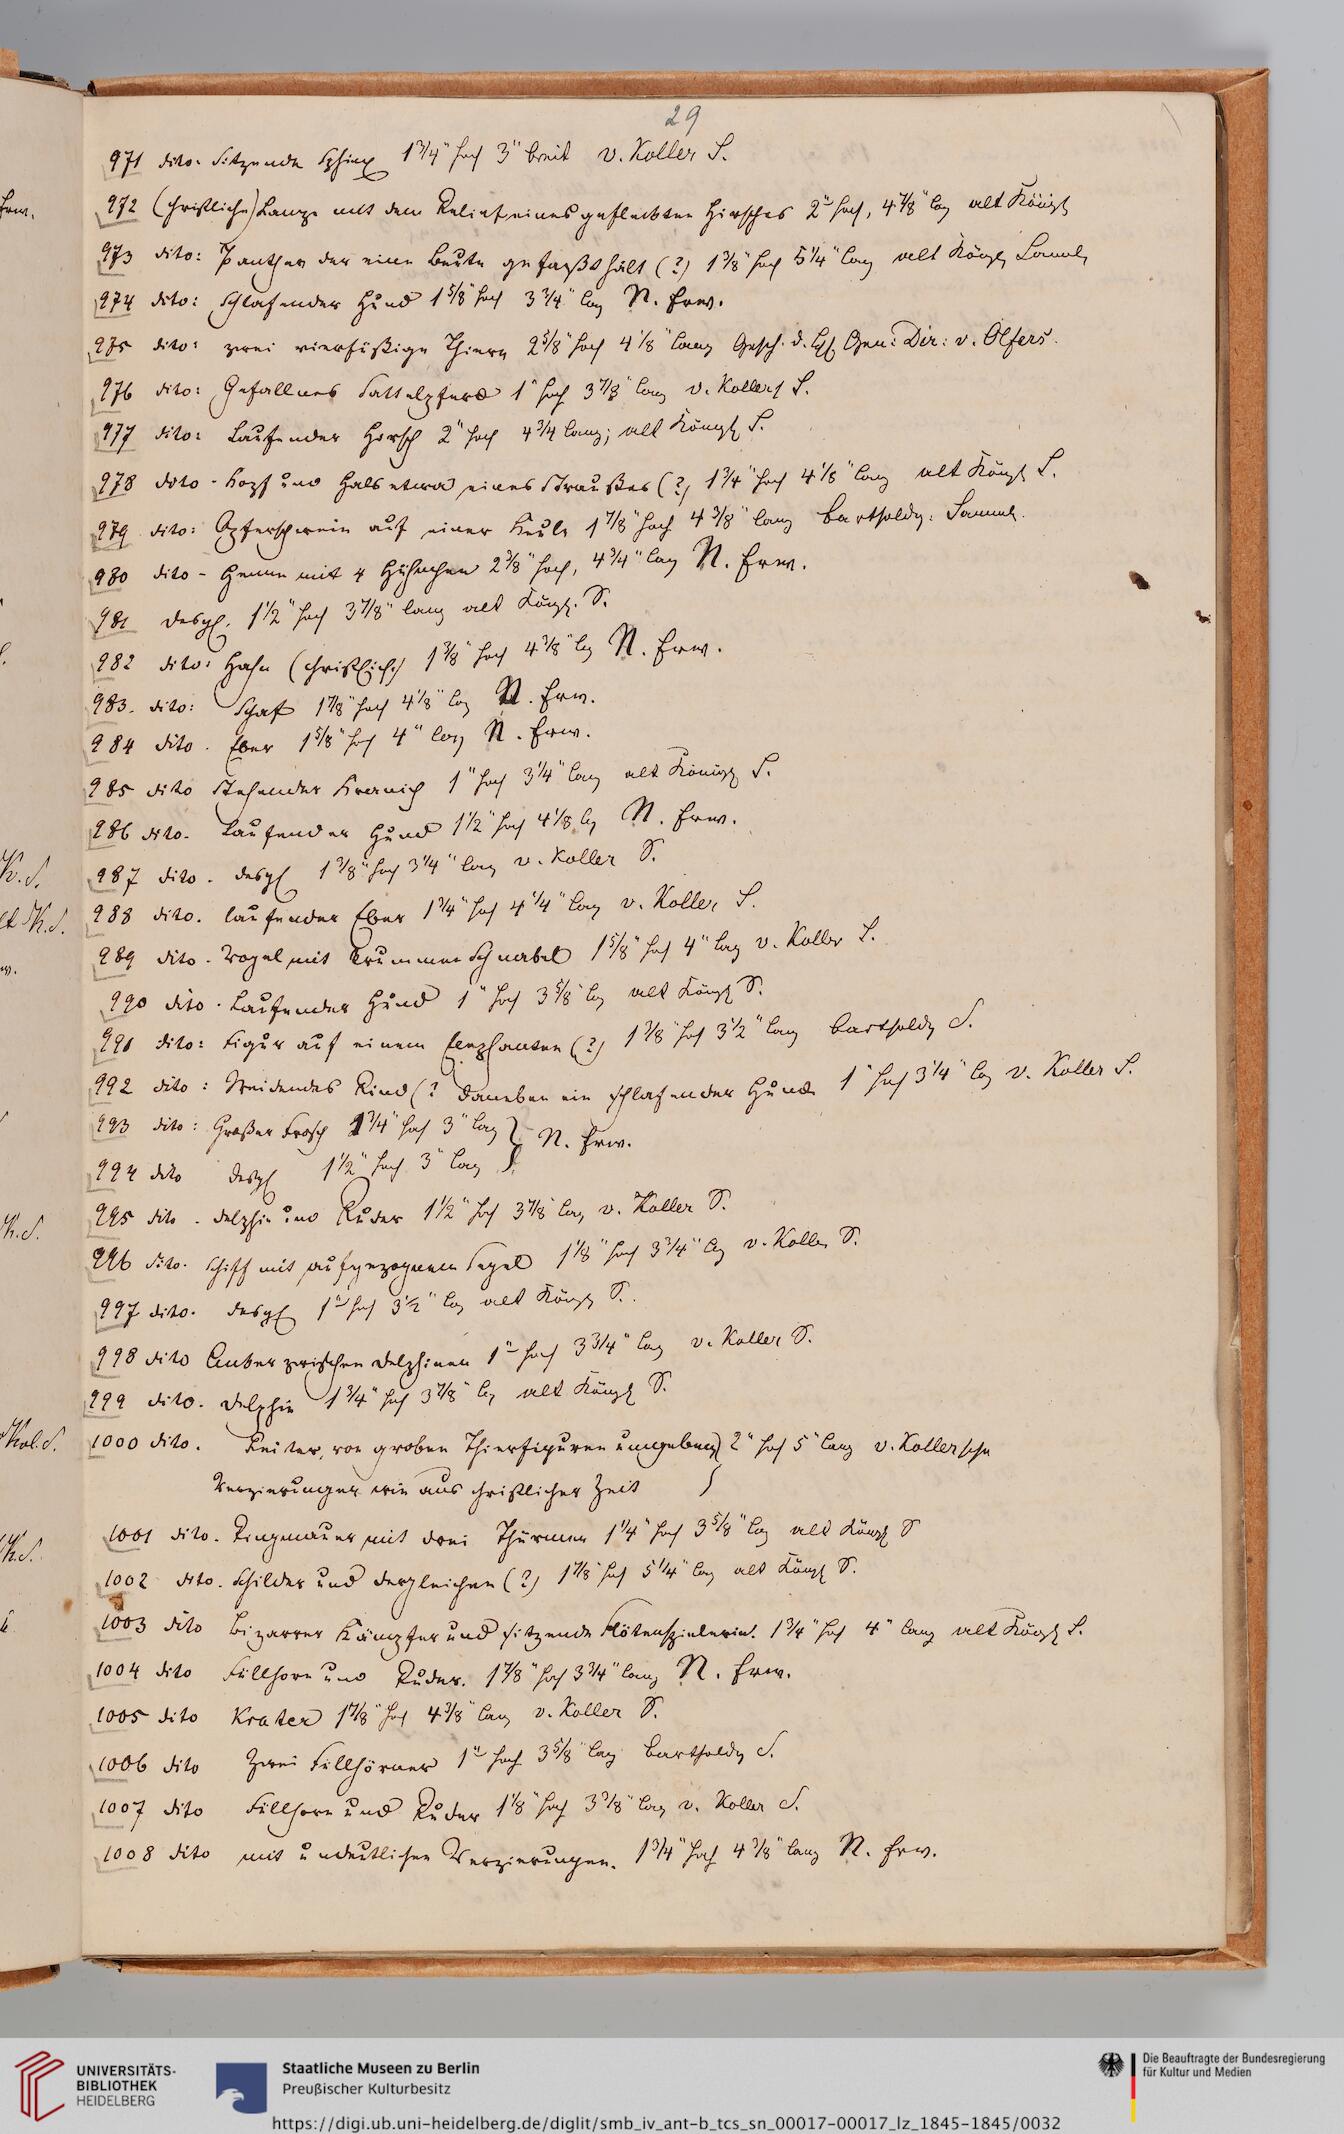 29
971 dito. Sitzende Sphinx 1¾" hoch 3" breit v. Koller S.
972 (christliche) Lampe mit dem Relief eines gefleckten Hirsches 2" hoch, 4⅞" lg alt Königl
973 dito: Panther der eine Beute gefaßt hält (?) 1⅜" hoch 5¼" lang alt Königl Samml
974 dito: Schlafender Hund 1⅝" hoch 3¾" lag N. Erw.
975 dito: zwei vierfüßige Thiere 2⅝" hoch 4⅛" lang Gesch. d. Gen: Dir: v. Olfers.
976 dito: Gefallnes Sattelpferd 1" hoch 3⅞" lang v. Koller S.
977 dito: Laufender Hirsch 2" hoch 4¾ lang; alt Königl S.
978 dito - Kopf und Hals etwa eines Straußes (?) 1¾" hoch 4⅛" lang alt Königl S.
979 dito: Opferschwein auf einer Keule 1⅞" hoch 4⅜" lang Bartholdy. Samml.
980 dito - Henne mit 4 Hühnchen 2⅜" hoch, 4¾" lang N. Erw.
981 desgl. 1½" hoch 3⅞" lang alt Königl. S.
982 dito: Hahn (christlich?) 1⅜" hoch 4⅜" lg N. Erw.
983. dito: Schaf 1⅞" hoch 4⅛" lg N. Erw.
984 dito. Eber 1⅝" hoch 4" lang N. Erw.
985 dito Stehender Kranich 1" hoch 3¼" lang alt Königl S.
986 dito. Laufender Hund 1½" hoch 4⅛ lg N. Erw.
987 dito. desgl 1⅜" hoch 3¼" lang v. Koller S.
988 dito. laufender Eber 1¾" hoch 4¼" lang v. Koller S.
989 dito. Vogel mit krummen Schnabel 1⅝" hoch 4" lag v. Koller S.
990 dito. Laufender Hund 1" hoch 3⅝ lg alt Königl S.
991 dito: Figur auf einem Elephanten (?) 1⅜" hoch 3½" lang Bartholdy S.
992 dito: Weidendes Rind (? daneben ein schlafender Hund 1" hoch 3¼" lg v. Koller S.
993 dito: Großer Frosch 1¾" hoch 3" lag } N. Erw.
994 dito desgl 1½" hoch 3" lang
995 dito. Delphin und Ruder 1½" hoch 3⅞" lang v. Koller S.
996 dito. Schiff mit aufgezogenem Segel 1⅛" hoch 3¾" lg v. Koller S.
997 dito. desgl 1" hoch 3½" lg alt Königl S.
998 dito Anker zwischen Delphinen 1" hoch 3¾" lang v. Koller S.
999 dito. Delphin 1¾" hoch 3⅞" lg alt Königl S.
1000 dito. Reiter, von groben Thierfiguren umgeben } 2" hoch 5" lang v. Kollersche
Verzierungen wie aus christlicher Zeit
1001 dito. Ringmauer mit drei Thürmen 1¼" hoch 3⅝" lg alt Königl S
1002 dito. Schilder und dergleichen (?) 1⅞" hoch 5¼" lang alt Königl S.
1003 dito Bizarrer Kämpfer und sitzende Flötenspielerin. 1¾" hoch 4" lang alt Königl S.
1004 dito Füllhorn und Ruder. 1⅞" hoch 3¾" lang N. Erw.
1005 dito Krater 1⅞" hoch 4⅜" lang v. Koller S.
1006 dito Zwei Füllhörner 1" hoch 3⅝" lang Bartholdy S.
1007 dito Füllhorn und Ruder 1⅛" hoch 3⅜" lang v. Koller S.
1008 dito mit undeutlichen Verzierungen. 1¾" hoch 4⅜" lang N. Erw.
UNIVERSITÄTS-
BIBLIOTHEK
HEIDELBERG
Staatliche Museen zu Berlin
Preußischer Kulturbesitz
Die Beauftragte der Bundesregierung
für Kultur und Medien
https://digi.ub.uni-heidelberg.de/diglit/smb_iv_ant-b_tcs_sn_00017-00017_lz_1845-1845/0032